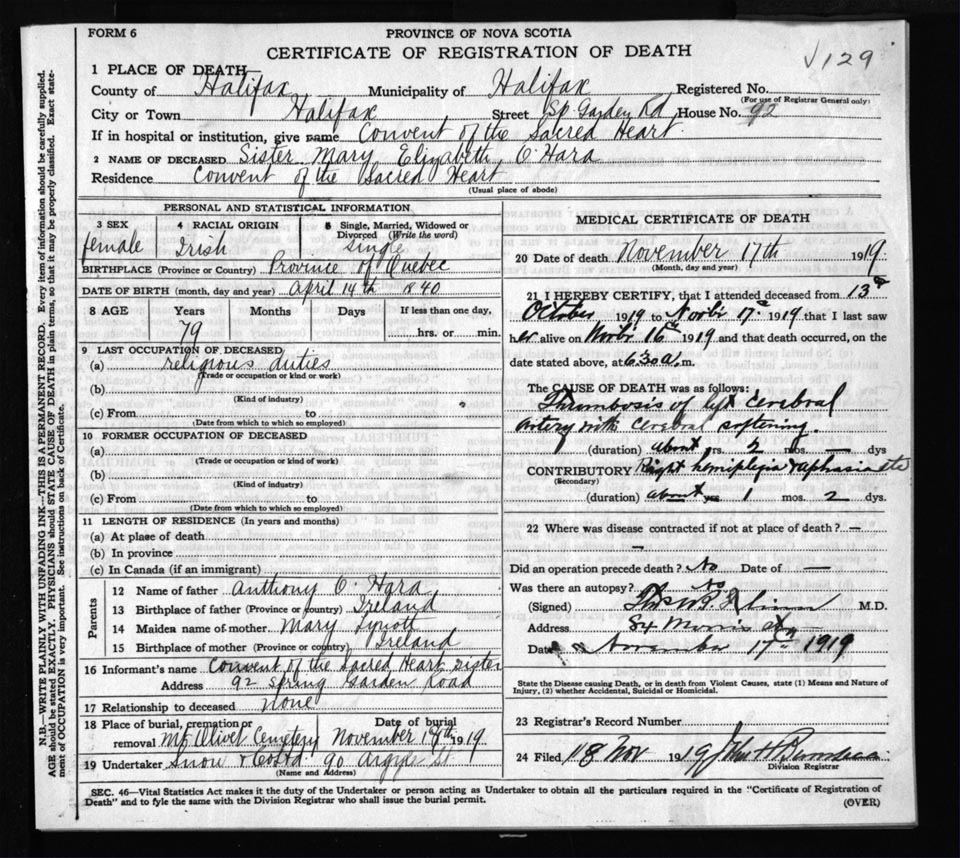 FORM 6
PROVINCE OF NOVA SCOTIA
CERTIFICATE OF REGISTRATION OF DEATH
129
1 PLACE OF DEATH
County of Halifax Municipality of Halifax Registered No.
(For use of Registrar General only)
City or Town Halifax Street Sp Garden Rd House No. 92
If in hospital or institution, give name Convent of the Sacred Heart
2 NAME OF DECEASED Sister Mary Elizabeth O'Hara
Residence Convent of the Sacred Heart
(Usual place of abode)
PERSONAL AND STATISTICAL INFORMATION
3 SEX 4 RACIAL ORIGIN 5 Single, Married, Widowed or Divorced (Write the word)
female Irish single
BIRTHPLACE (Province or Country) Province of Quebec
DATE OF BIRTH (month, day and year) April 14th 1840
8 AGE Years Months Days If less than one day,
79 hrs. or min.
9 LAST OCCUPATION OF DECEASED
(a) religious duties
(Trade or occupation or kind or work)
(b)
(Kind of industry)
(c) From to
(Date from which to which so employed)
10 FORMER OCCUPATION OF DECEASED
(a)
(Trade or occupation or kind of work)
(b)
(Kind of industry)
(c) From to
(Date from which to which so employed)
11 LENGTH OF RESIDENCE (In years and months)
(a) At place of death
(b) In province
(c) In Canada (if an immigrant)
Parents
12 Name of father Anthony O'Hara
13 Birthplace of father (Province or country) Ireland
14 Maiden name of mother Mary Lynott
15 Birthplace of mother (Province or country) Ireland
16 Informant's name Convent of the Sacred Heart Sister
Address 92 Spring Garden Road
17 Relationship to deceased none
18 Place of burial, cremation or removal Mt Olivet Cemetery Date of burial November 1919
19 Undertaker Snow & Co Ltd 90 Argyle St
(Name and Address)
MEDICAL CERTIFICATE OF DEATH
20 Date of death November 17th 1919
(Month, day and year)
21 I HEREBY CERTIFY, that I attended deceased from 13th
October 1919 to Novbr 17th 1919 that I last saw
her alive on Novbr 16th 1919 and that death occurred, on the
date stated above, at 6.30 a.m.
The CAUSE OF DEATH was as follows:
Thrombosis of left cerebral
artery with cerebral softening.
(duration) about yrs. 2 mos. dys
CONTRIBUTORY Right hemiplegia & aphasia etc
(Secondary)
(duration) about yrs 1 mos. 2 dys.
22 Where was disease contracted if not at place of death? —
—
Did an operation precede death? No Date of —
Was there an autopsy? No
(Signed) M.D.
Address 84 Morris St
Date November 17th 1919
State the Disease causing Death, or in death from Violent Causes, state (1) Means and Nature of
Injury, (2) whether Accidental, Suicidal or Homicidal.
23 Registrar's Record Number
24 Filed 18 Nov 1919 John H
Division Registrar
SEC. 46—Vital Statistics Act makes it the duty of the Undertaker or person acting as Undertaker to obtain all the particulars required in the "Certificate of Registration of
Death" and to fyle the same with the Division Registrar who shall issue the burial permit.
(OVER)
N.B.—WRITE PLAINLY WITH UNFADING INK—THIS IS A PERMANENT RECORD. Every item of information should be carefully supplied.
AGE should be stated EXACTLY. PHYSICIANS should STATE CAUSE OF DEATH in plain terms, so that it may be properly classified. Exact state-
ment of OCCUPATION is very important. See instructions on back of Certificate.